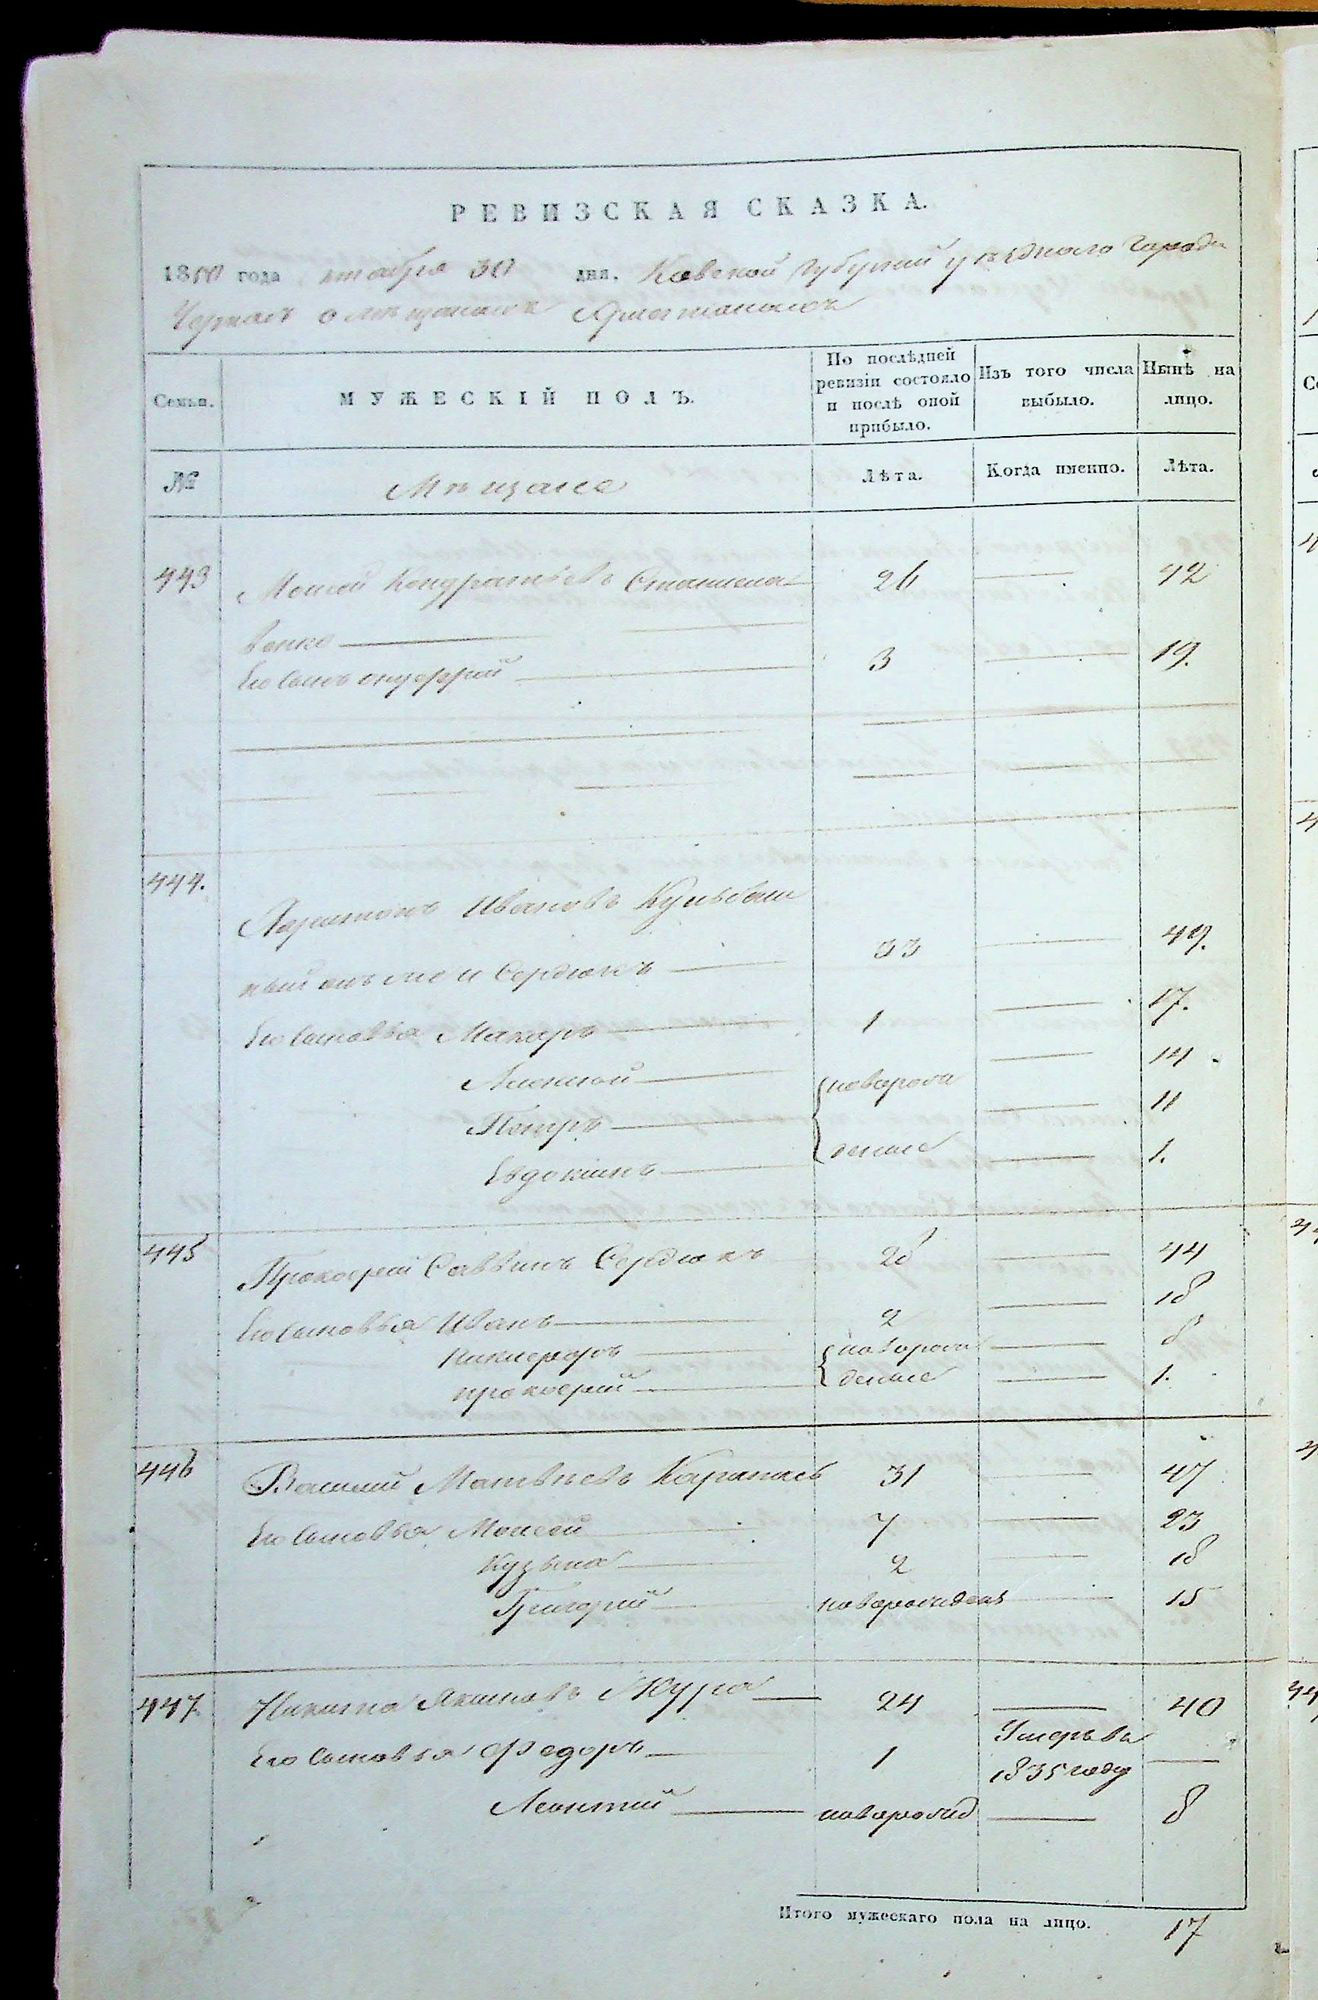 РЕВИЗСКАЯ СКАЗКА.
1850 года октября 30 дня, Киевской Губерний уезднаго Города
Черкасъ о мещанахъ Христианахъ
Семьи.
МУЖЕСКІЙ ПОЛЪ.
По послѣдней ревизіи состояло и послѣ оной прибыло.
Изъ того числа выбыло.
Нынѣ на лицо.
№
Мещане
Лѣта.
Когда именно.
Лѣта.
443 Моисей Кондратьевъ Станисла- 26 — 42
венко —
Его Сынъ онуфрий — 3 — 19.
444. Харитонъ Ивановъ Кульбаш
ный онъ же и Сердюкъ — 33 — 49.
Его Сыновья Макаръ — 1 — 17.
Алексей — новорож — 14
Петръ — — 11
Евдокимъ — денные — 1.
445 Прокофий Саввинъ Сердюкъ 28 — 44
Его Сыновья Иванъ — 2 — 18
Никифоръ — новорож — 8
прокофий — денные — 1.
446 Василий Матвеевъ Карапась 31 — 47
Его Сыновья Моисей 7 — 23
Кузьма — 2 — 18
Григорий — новорожденъ — 15
447 Никита Якимовъ Жура — 24 — 40
Его Сыновья Федоръ — 1 Умеръ въ 1835 году —
Леонтий — новорожд — 8
Итого мужескаго пола на лицо. 17